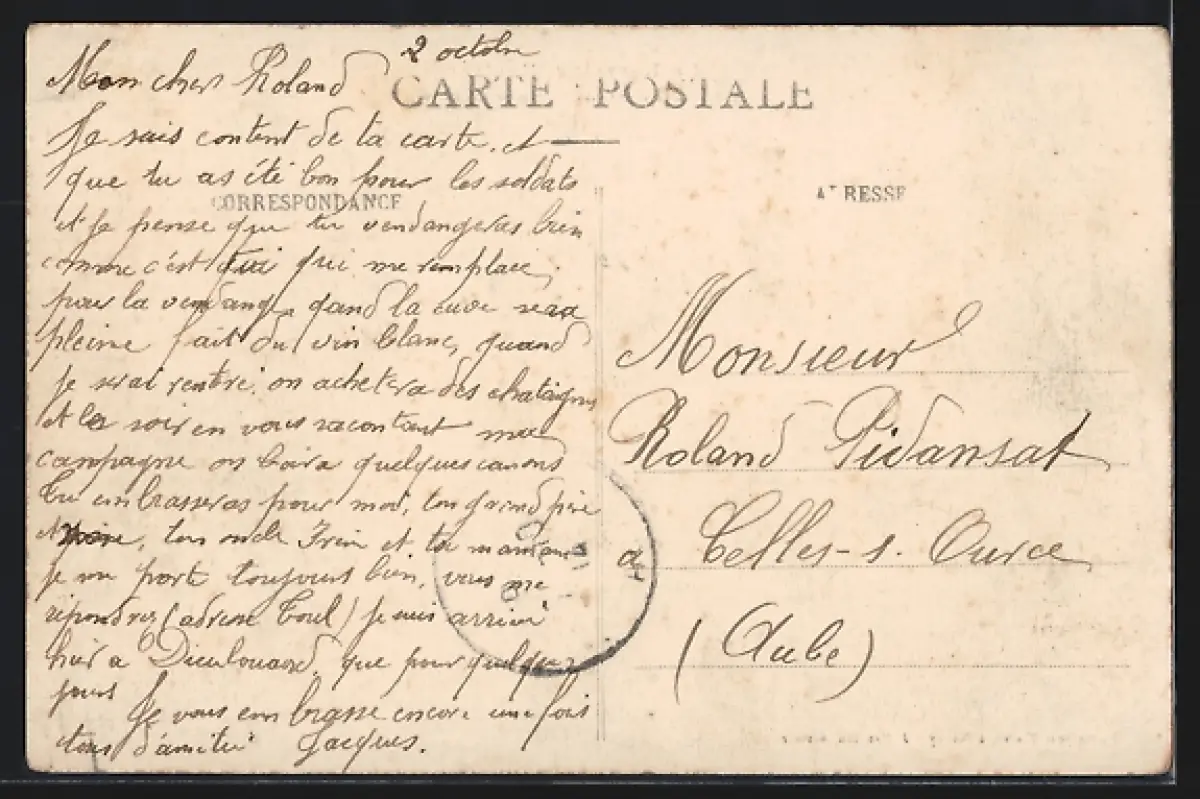 2 octobre
Mon cher Roland
CARTE POSTALE
Je suis content de ta carte, et
que tu as été bon pour les soldats
CORRESPONDANCE
et je pense que tu vendangeras bien
comme c'est qui me remplace
pour la vendange, quand la cuve sera
pleine fait du vin blanc, quand
je serai rentré, on achetera des chataignes
et le soir en vous racontant ma
campagne on boira quelques canons
Tu embrasseras pour moi, ton grand père
et, ton oncle Irén et ta maman
je me porte toujours bien, vous me
répondrez (adresse Toul) je suis arrivé
hier a Dieulouard, que pour quelques
jours
Je vous embrasse encore une fois
tous d'amitié Jacques.
RESSE
Monsieur
Roland Pidansat
a Celles-s. Ource
(Aube)